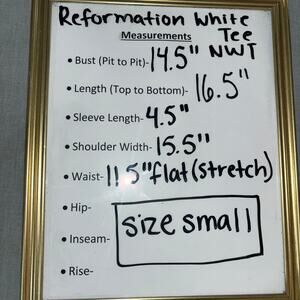 Reformation White
Tee
Measurements NWT
• Bust (Pit to Pit)- 14.5"
• Length (Top to Bottom)- 16.5"
• Sleeve Length- 4.5"
• Shoulder Width- 15.5"
• Waist- 11.5" flat (stretch)
• Hip-
size small
• Inseam-
• Rise-